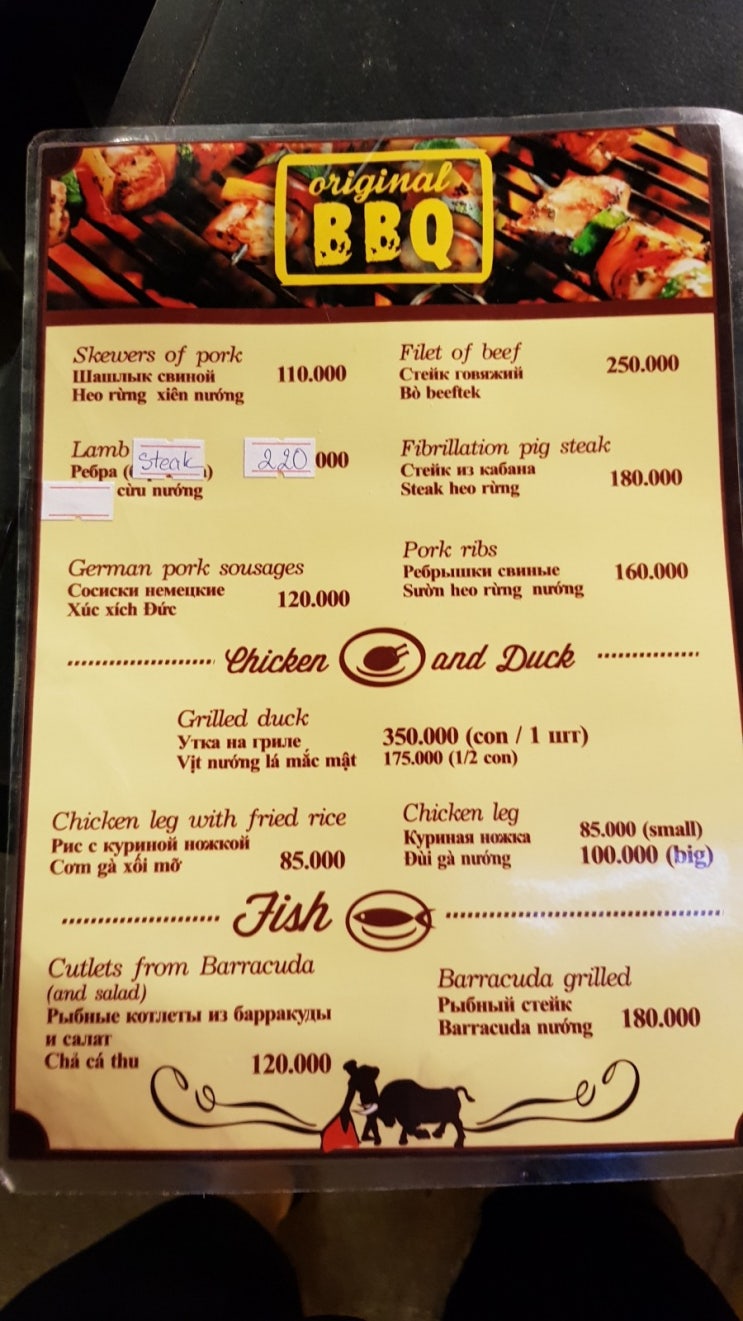 original
BBQ
Skewers of pork
Шашлык свиной
Heo rừng xiên nướng
110.000
Filet of beef
Стейк говяжий
Bò beeftek
250.000
Lamb steak
Ребра
cừu nướng
220 000
Fibrillation pig steak
Стейк из кабана
Steak heo rừng
180.000
German pork sausages
Сосиски немецкие
Xúc xích Đức
120.000
Pork ribs
Ребрышки свиные
Sườn heo rừng nướng
160.000
Chicken and Duck
Grilled duck
Утка на гриле
Vịt nướng lá mắc mật
350.000 (con / 1 шт)
175.000 (1/2 con)
Chicken leg with fried rice
Рис с куриной ножкой
Cơm gà xối mỡ
85.000
Chicken leg
Куриная ножка
Đùi gà nướng
85.000 (small)
100.000 (big)
Fish
Cutlets from Barracuda
(and salad)
Рыбные котлеты из барракуды
и салат
Chả cá thu
120.000
Barracuda grilled
Рыбный стейк
Barracuda nướng
180.000